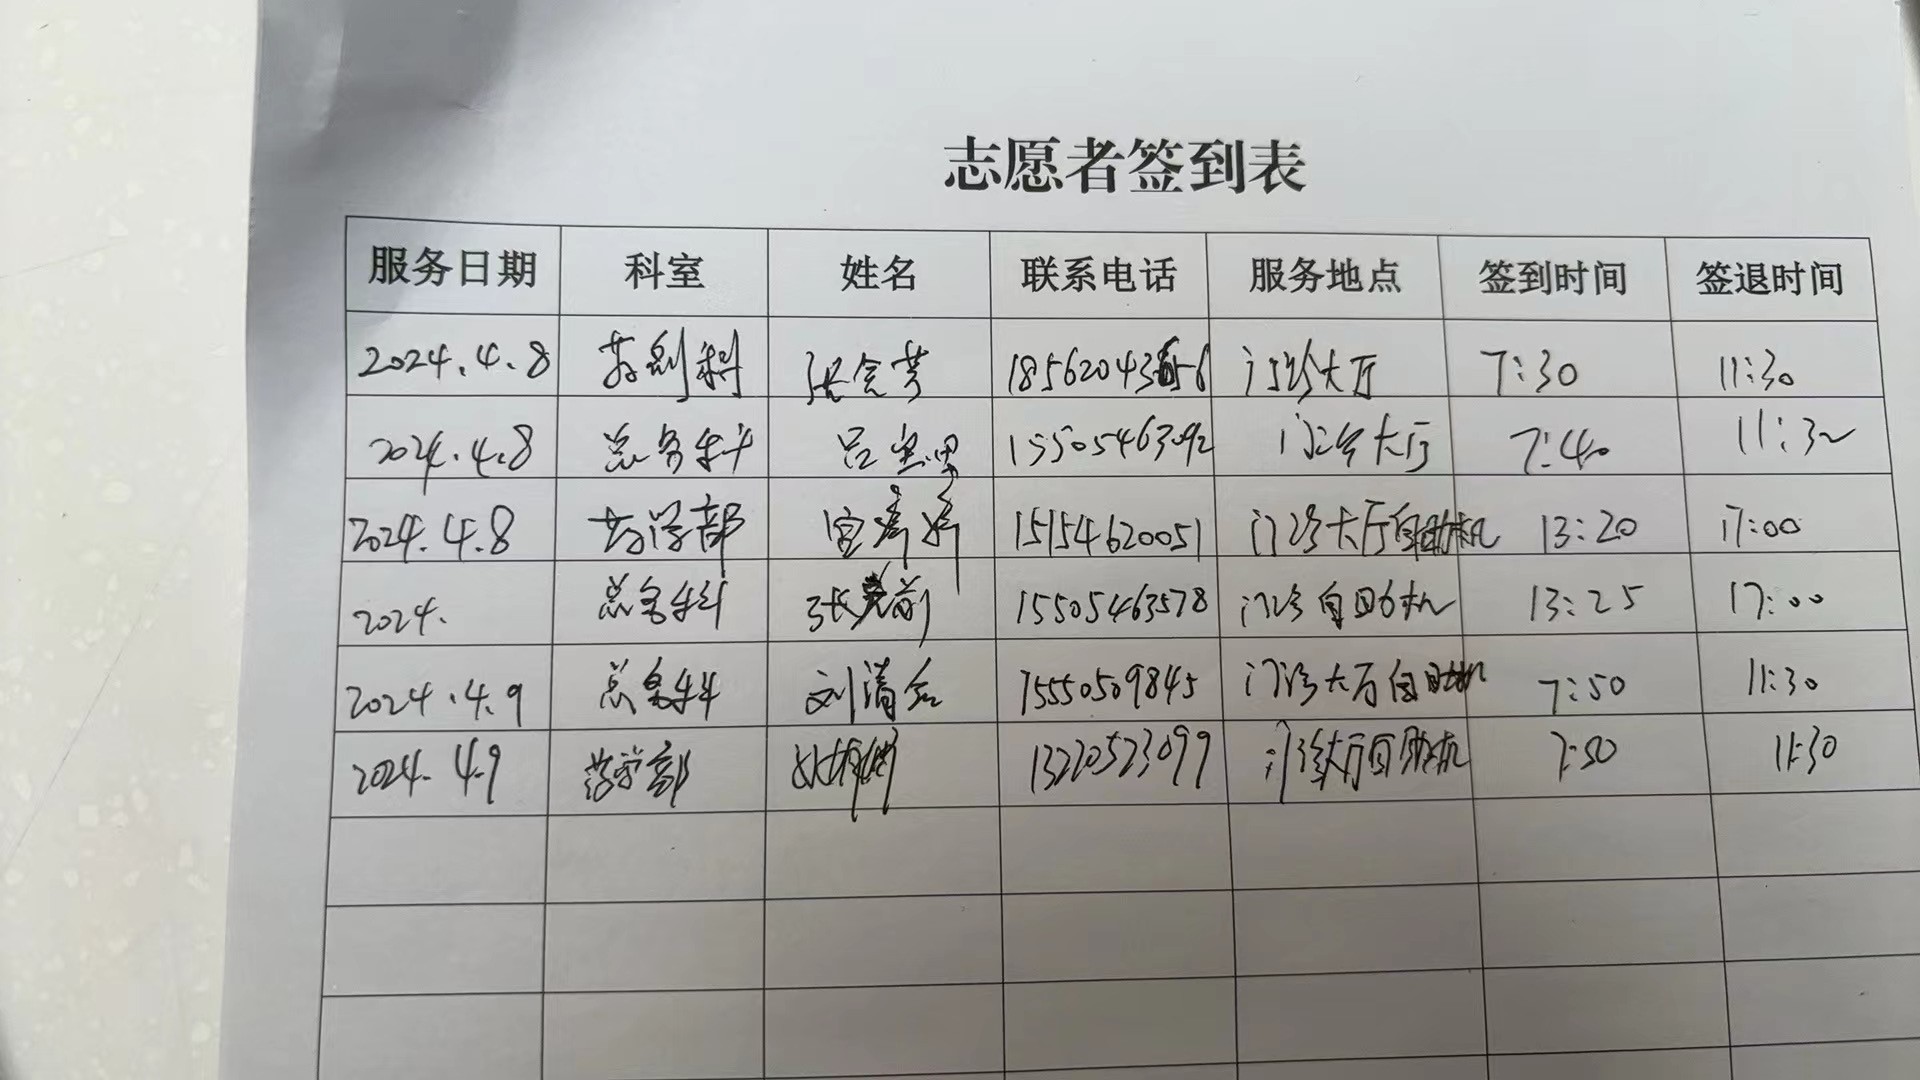 志愿者签到表
服务日期 科室 姓名 联系电话 服务地点 签到时间 签退时间
2024.4.8 药剂科 张会芳 门诊大厅 7:30 11:30
2024.4.8 总务科 吕 15505463092 门诊大厅 7:40 11:32
2024.4.8 药学部 宫婷婷 15154620051 门诊大厅自助机 13:20 17:00
2024. 总务科 张 前 15505463578 门诊自助机 13:25 17:00
2024.4.9 总务科 刘清 15550509845 门诊大厅自助机 7:50 11:30
2024.4.9 药学部 13220523099 门诊大厅自助机 7:50 11:30